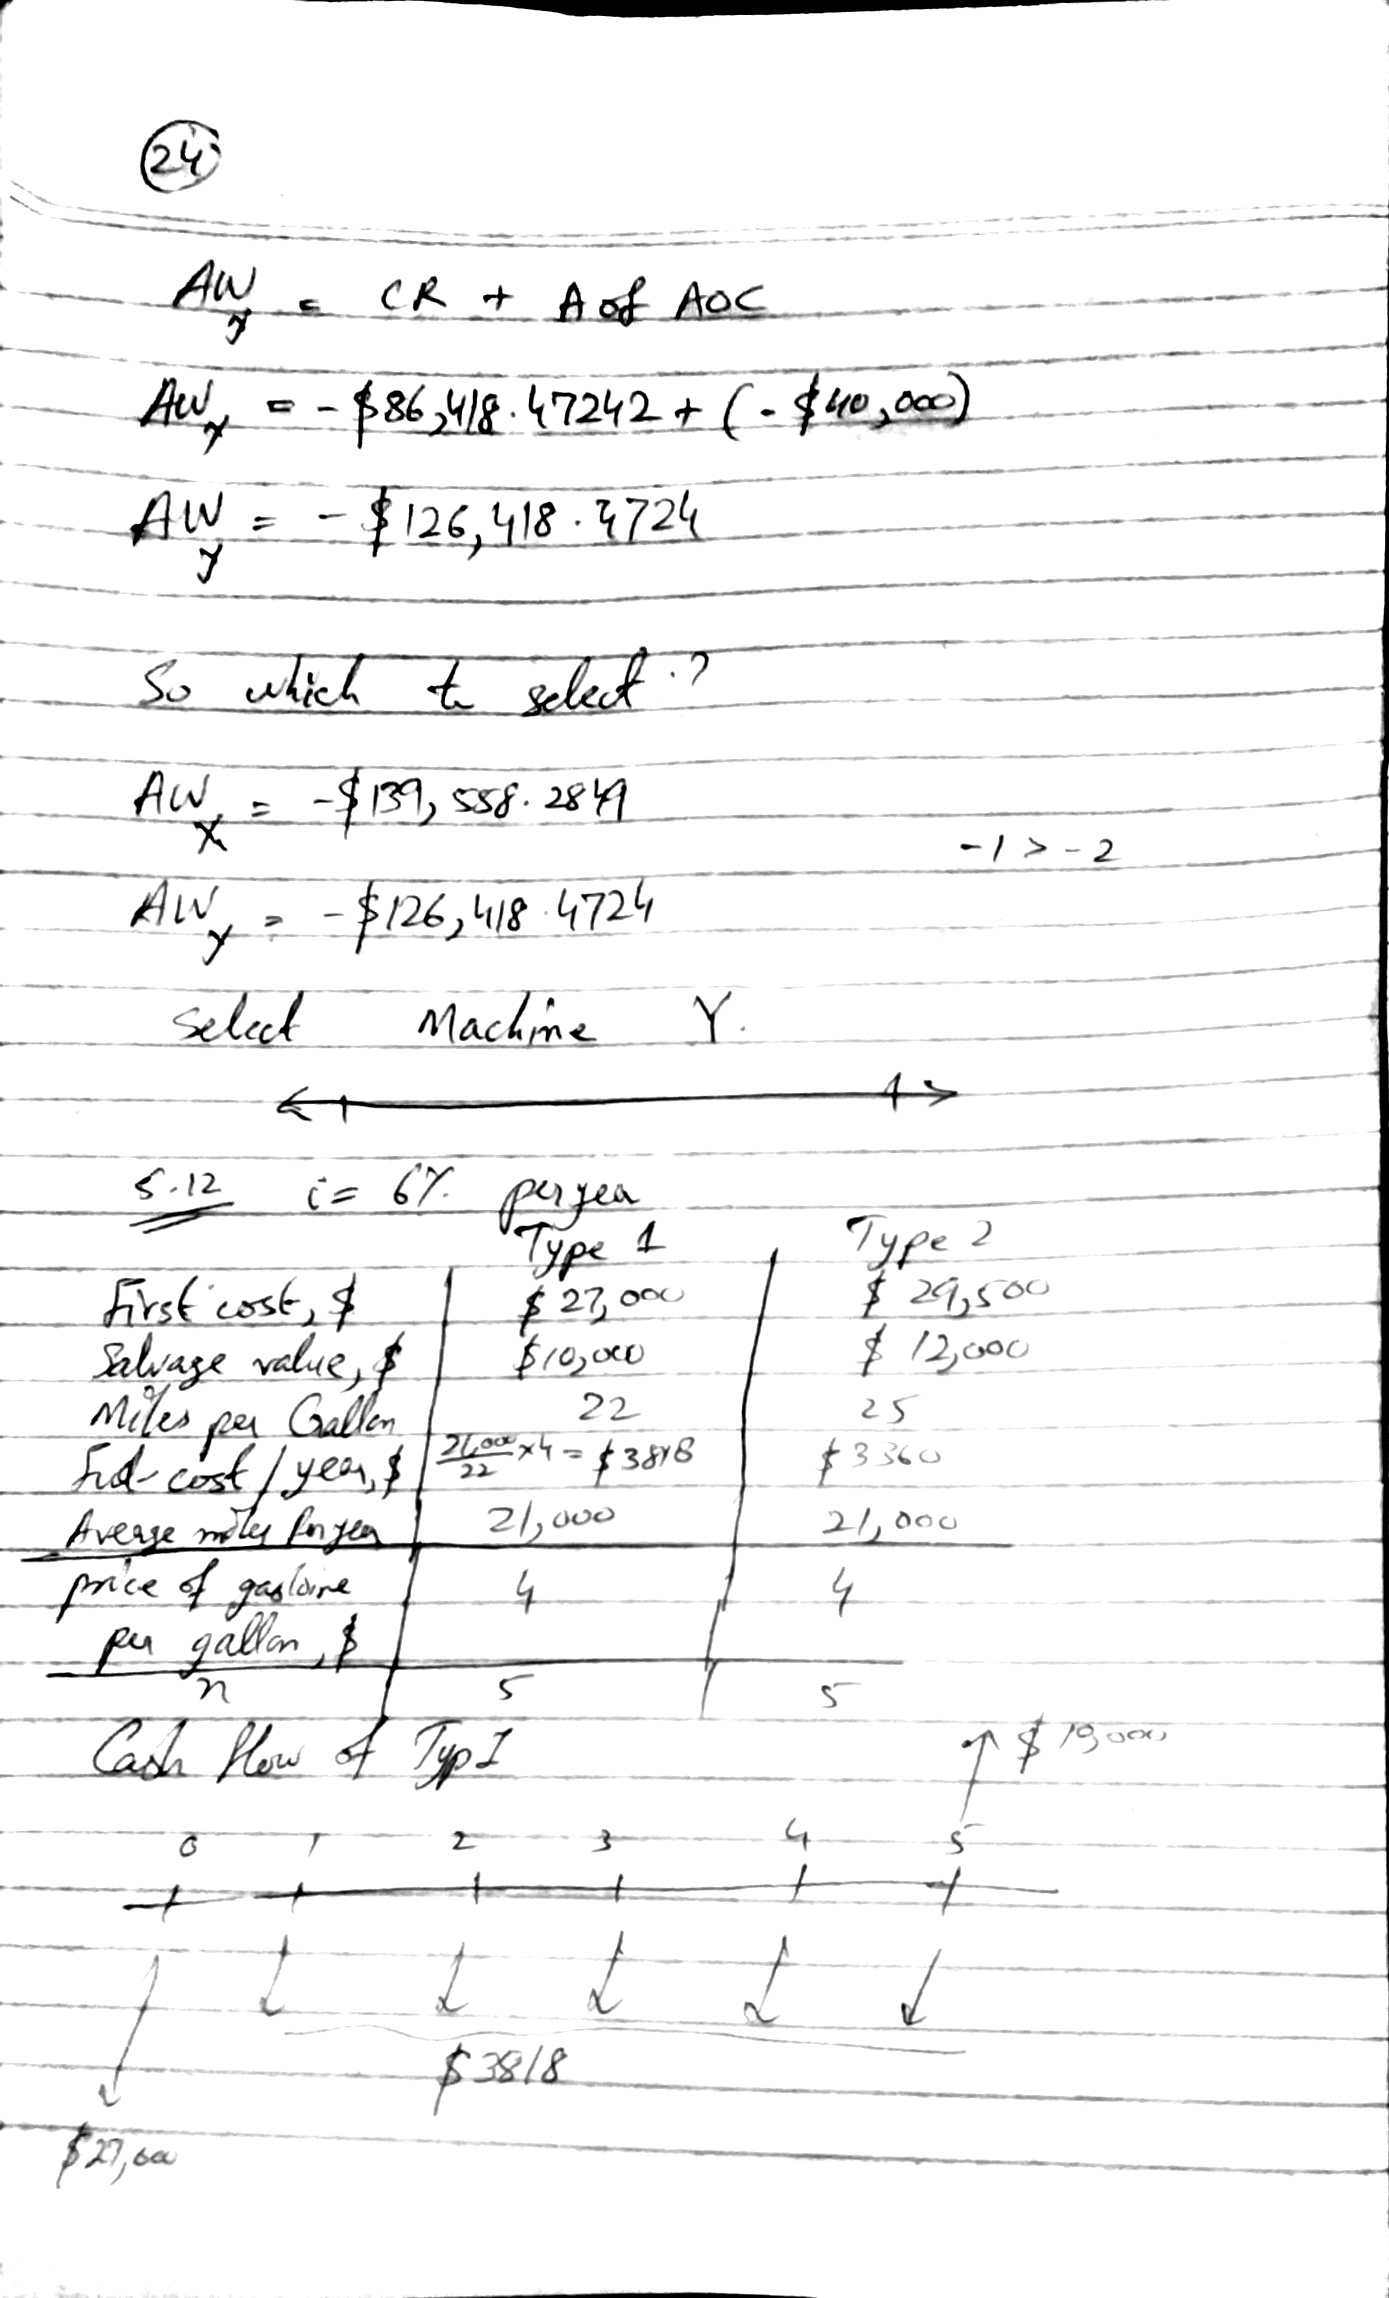 24
AWy = CR + A of AOC
AWy = -$86,418.47242 + (-$40,000)
AWy = -$126,418.4724
So which to select?
AWx = -$139,558.2849
-1 > -2
AWy = -$126,418.4724
Select Machine Y.
5.12 i = 6% per year
Type 1 Type 2
First cost, $ $27,000 $29,500
Salvage value, $ $10,000 $12,000
Miles per Gallon 22 25
Fuel cost / year, $ 21,000/22 x 4 = $3818 $3360
Average miles per year 21,000 21,000
price of gasloine 4 4
per gallon, $
n 5 5
Cash flow of Typ I
$10,000
0 1 2 3 4 5
$3818
$27,000